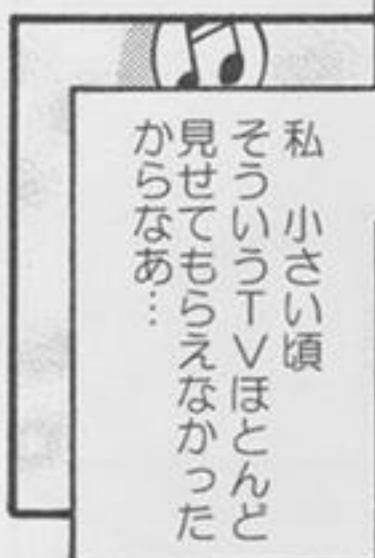 私　小さい頃
そういうTVほとんど
見せてもらえなかった
からなあ…